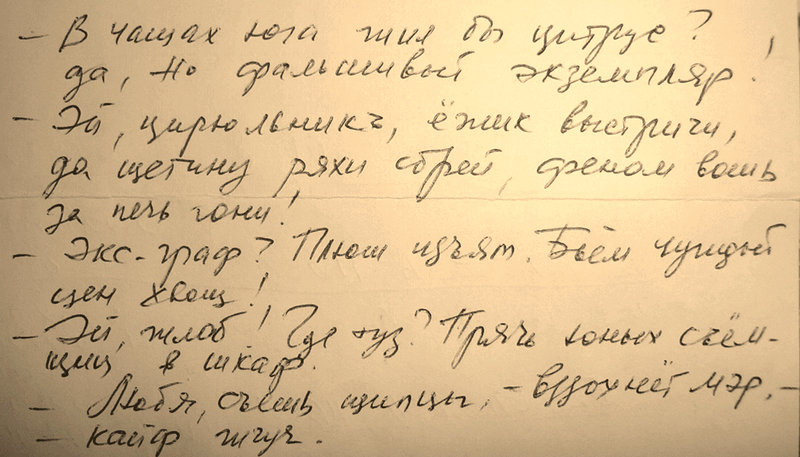 – В чащах юга жил бы цитрус?
да, но фальшивый экземпляр!
– Эй, цирюльникъ, ёжик выстриги,
да щетину ряхи сбрей, феном вошь
за печь гони!
– Экс-граф? Плюш изъят. Бьём чуждый
цен хвощ!
– Эй, жлоб! Где туз? Прячь юных съём-
щиц в шкаф.
– Любя, съешь щипцы, – вздохнёт мэр, –
– кайф жгуч.